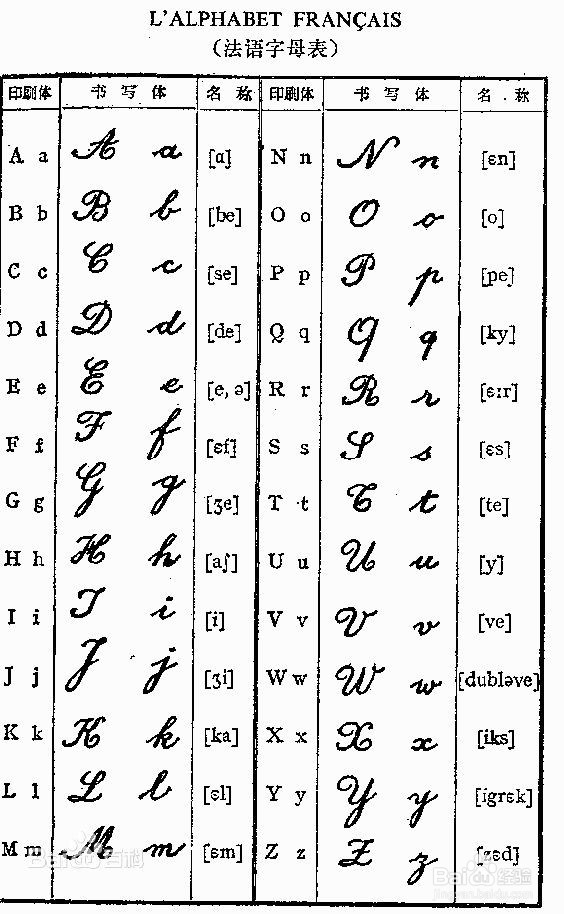 L'ALPHABET FRANÇAIS
（法语字母表）
印刷体 书写体 名称 印刷体 书写体 名.称
A a A a [ɑ] N n N n [ɛn]
B b B b [be] O o O o [o]
C c C c [se] P p P p [pe]
D d D d [de] Q q Q q [ky]
E e E e [e, ə] R r R r [ɛːr]
F f F f [ɛf] S s S s [ɛs]
G g G g [ʒe] T t T t [te]
H h H h [aʃ] U u U u [y]
I i I i [i] V v V v [ve]
J j J j [ʒi] W w W w [dubləve]
K k K k [ka] X x X x [iks]
L l L l [ɛl] Y y Y y [igrɛk]
M m M m [ɛm] Z z Z z [zɛd]
Bai 百科
Bai 经验